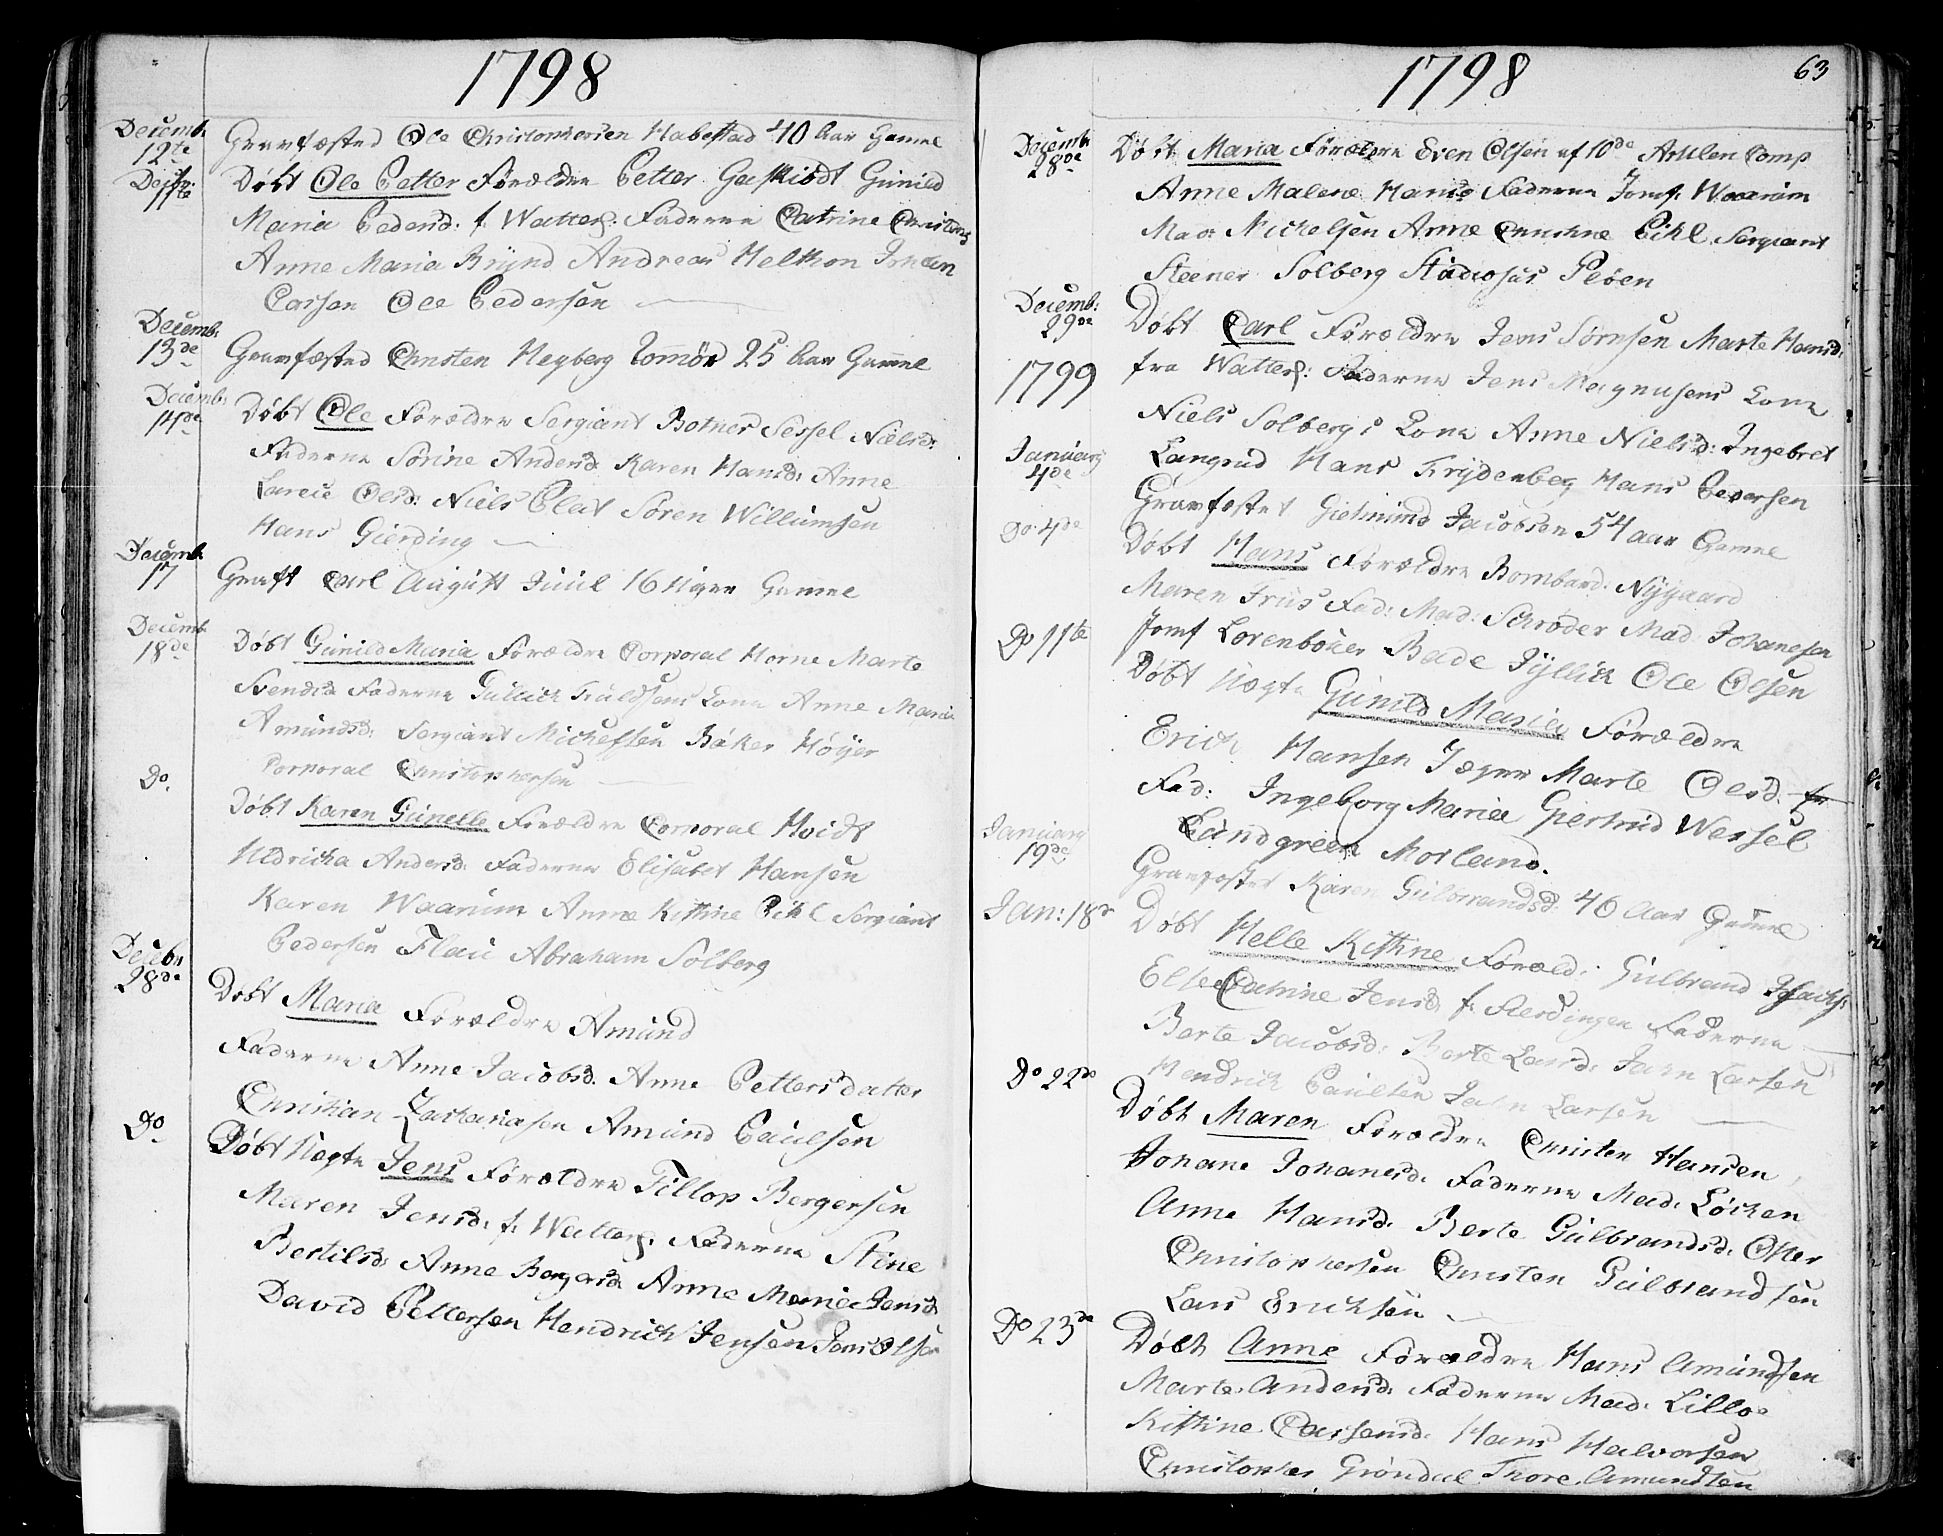 1798
Decemb. 12te Gravfæsted Ole Christophersen Habestad 40 Aar Gamme
Decbr: 11te Døbt Ole Petter Forældre Petter Gunild
Maria Peders. f. Watterl: Fadderne Catrine
Anne Maria Brynd Andreas Helthon
Ole Pedersen
Decemb. 13de Gravfæsted Christen Hegberg Tommør 25 Aar Gamme
Decemb: 14de Døbt Ole Forældre Sergiant Botner Sessel Nielsd:
Fadderne Sørine Andersd. Karen Hansd: Anne
Olesd: Niels Plat Søren Willumsen
Hans Gierding
Decemb. 17 Graft Carl August Juul 16 Uger Gamme
Decemb 18de Døbt Gunild Maria Forældre Corporal Horne Marte
Svendsd. Fadderne Gullich Kone Anne Maria
Amundsd: Sergiant Michelsen Baker Høyer
Corporal Christophersen
Do. Døbt Karen Gunelle Forældre Corporal Hvidt
Uldricka Andersd. Fadderne Elisabet Hansen
Karen Waarum Anne Kistine Pihl Sergiant
Pedersen Flau Abraham Solberg
Decbr 28de Døbt Maria Forældre Amund
Fadderne Anne Jacobsd. Anne Pettersdatter
Christian Zachariasen Amund Paulsen
Do Døbt Uægte Jens Forældre Tillop Bergersen
Maren Jensd. f. Watterl. Fadderne Stine
Bertilsd: Anne Bergersd. Anne Maria Jensd.
David Pettersen Hendrich Jensen Jens Olsen
1798
63
Decemb 28de Døbt Maria Forældre Even Olsen af 10de Comp
Anne Malene Hansd Fadderne Jomf. Waarum
Mad: Michelsen Anne Christine Pihl Sergiant
Steener Solberg Studiosus Peøen
Decemb: 29de Døbt Carl Forældre Jens Sørnsen Marte Hansd.
1799
fra Watterl: Fadderne Jens Magnusens Kone
Niels Solbergs Kone Anne Nielsd: Ingebret
Langrud Hans Frydenberg Hans Pedersen
Januarj 4de Gravfæstet Gietmund Jacobsen 54 aar Gamme
Do 4de Døbt Hans Forældre Bombard: Nygaard
Maren Friis Fad: Mad: Schrøder Mad: Johanesen
Jomf Lorenbøker Bade Jyllich Ole Olsen
Do 11te Døbt Uægte Gunild Maria Forældre
Erich Hansen Jæger Marte Olesd.
Fad: Ingeborg Maria Giertrud Wessel
Lundgreen Morland.
Januarj 19de Gravfæstet Karen Gulbrandsd. 46 Aar Gamme
Jan: 18de Døbt Helle Kistine Foræld: Gulbrand
Else Catrine Jensd. f. Fierdingen Fadderne
Berte Jacobsd: Berte Larsd. Jahn Larsen
Hendrich Paulsen Jahn Larsen
Do 22de Døbt Maren Forældre Christen Hansen
Johane Johanesd. Fadderne Mad. Løchen
Anne Hansd. Berte Gulbrandsd. Oster
Christophersen Christen Gulbrandsen
Lars Erichsen
Do 23de Døbt Anne Forældre Hans Amundsen
Marte Andersd. Fadderne Mad. Lilloe
Kistine Hans Halvorsen
Christopher Grøndal Thore Amundsen